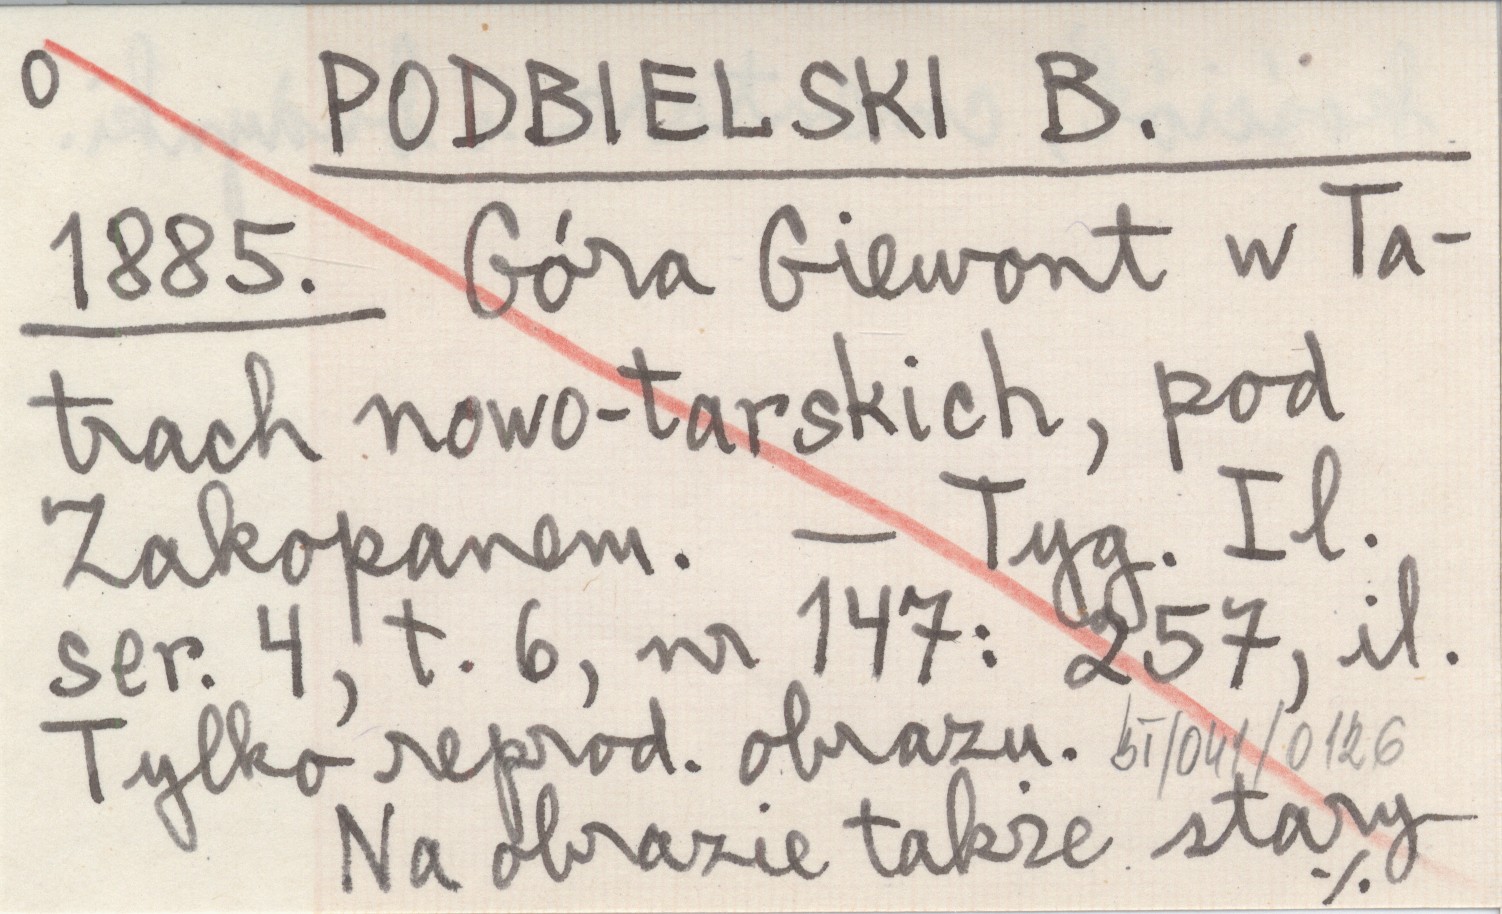 O PODBIELSKI B.
1885. Góra Giewont w Ta-
trach nowo-tarskich, pod
Zakopanem. — Tyg. Il.
ser. 4, t. 6, nr 147: 257, il.
Tylko reprod. obrazu. bI/041/0126
Na obrazie także stary
·/.